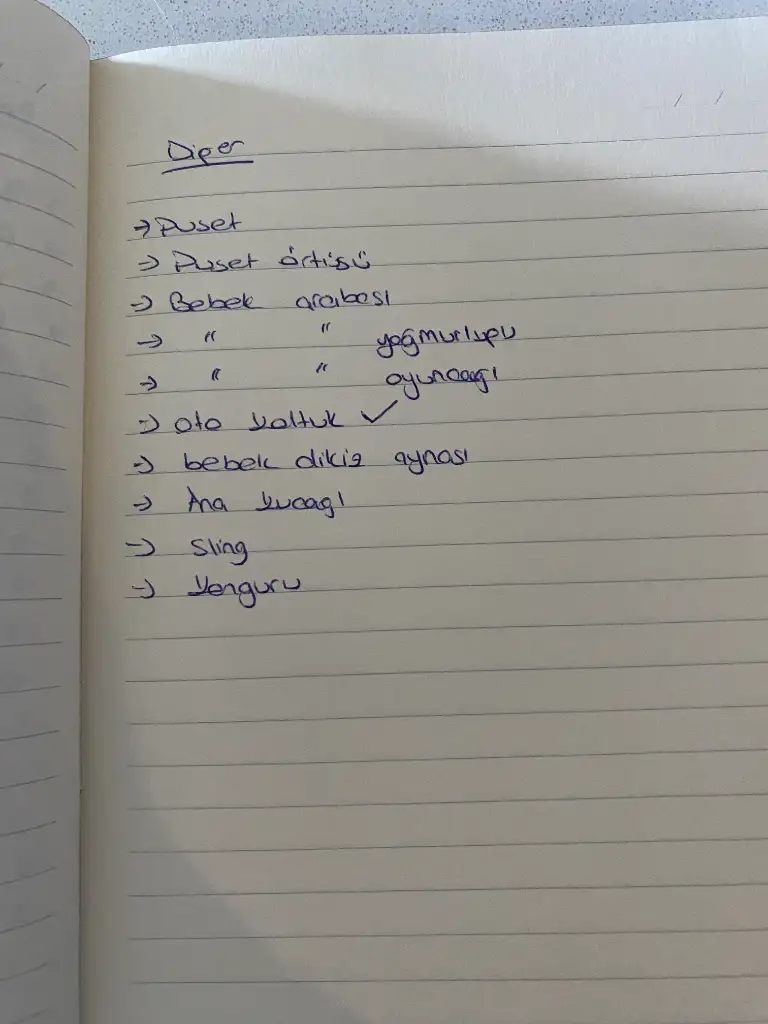 Diğer
→ Puset
→ Puset örtüsü
→ Bebek arabası
→ " " yağmurluğu
→ " " oyuncağı
→ oto koltuk ✓
→ bebek dikiz aynası
→ Ana kucağı
→ Sling
→ Kanguru